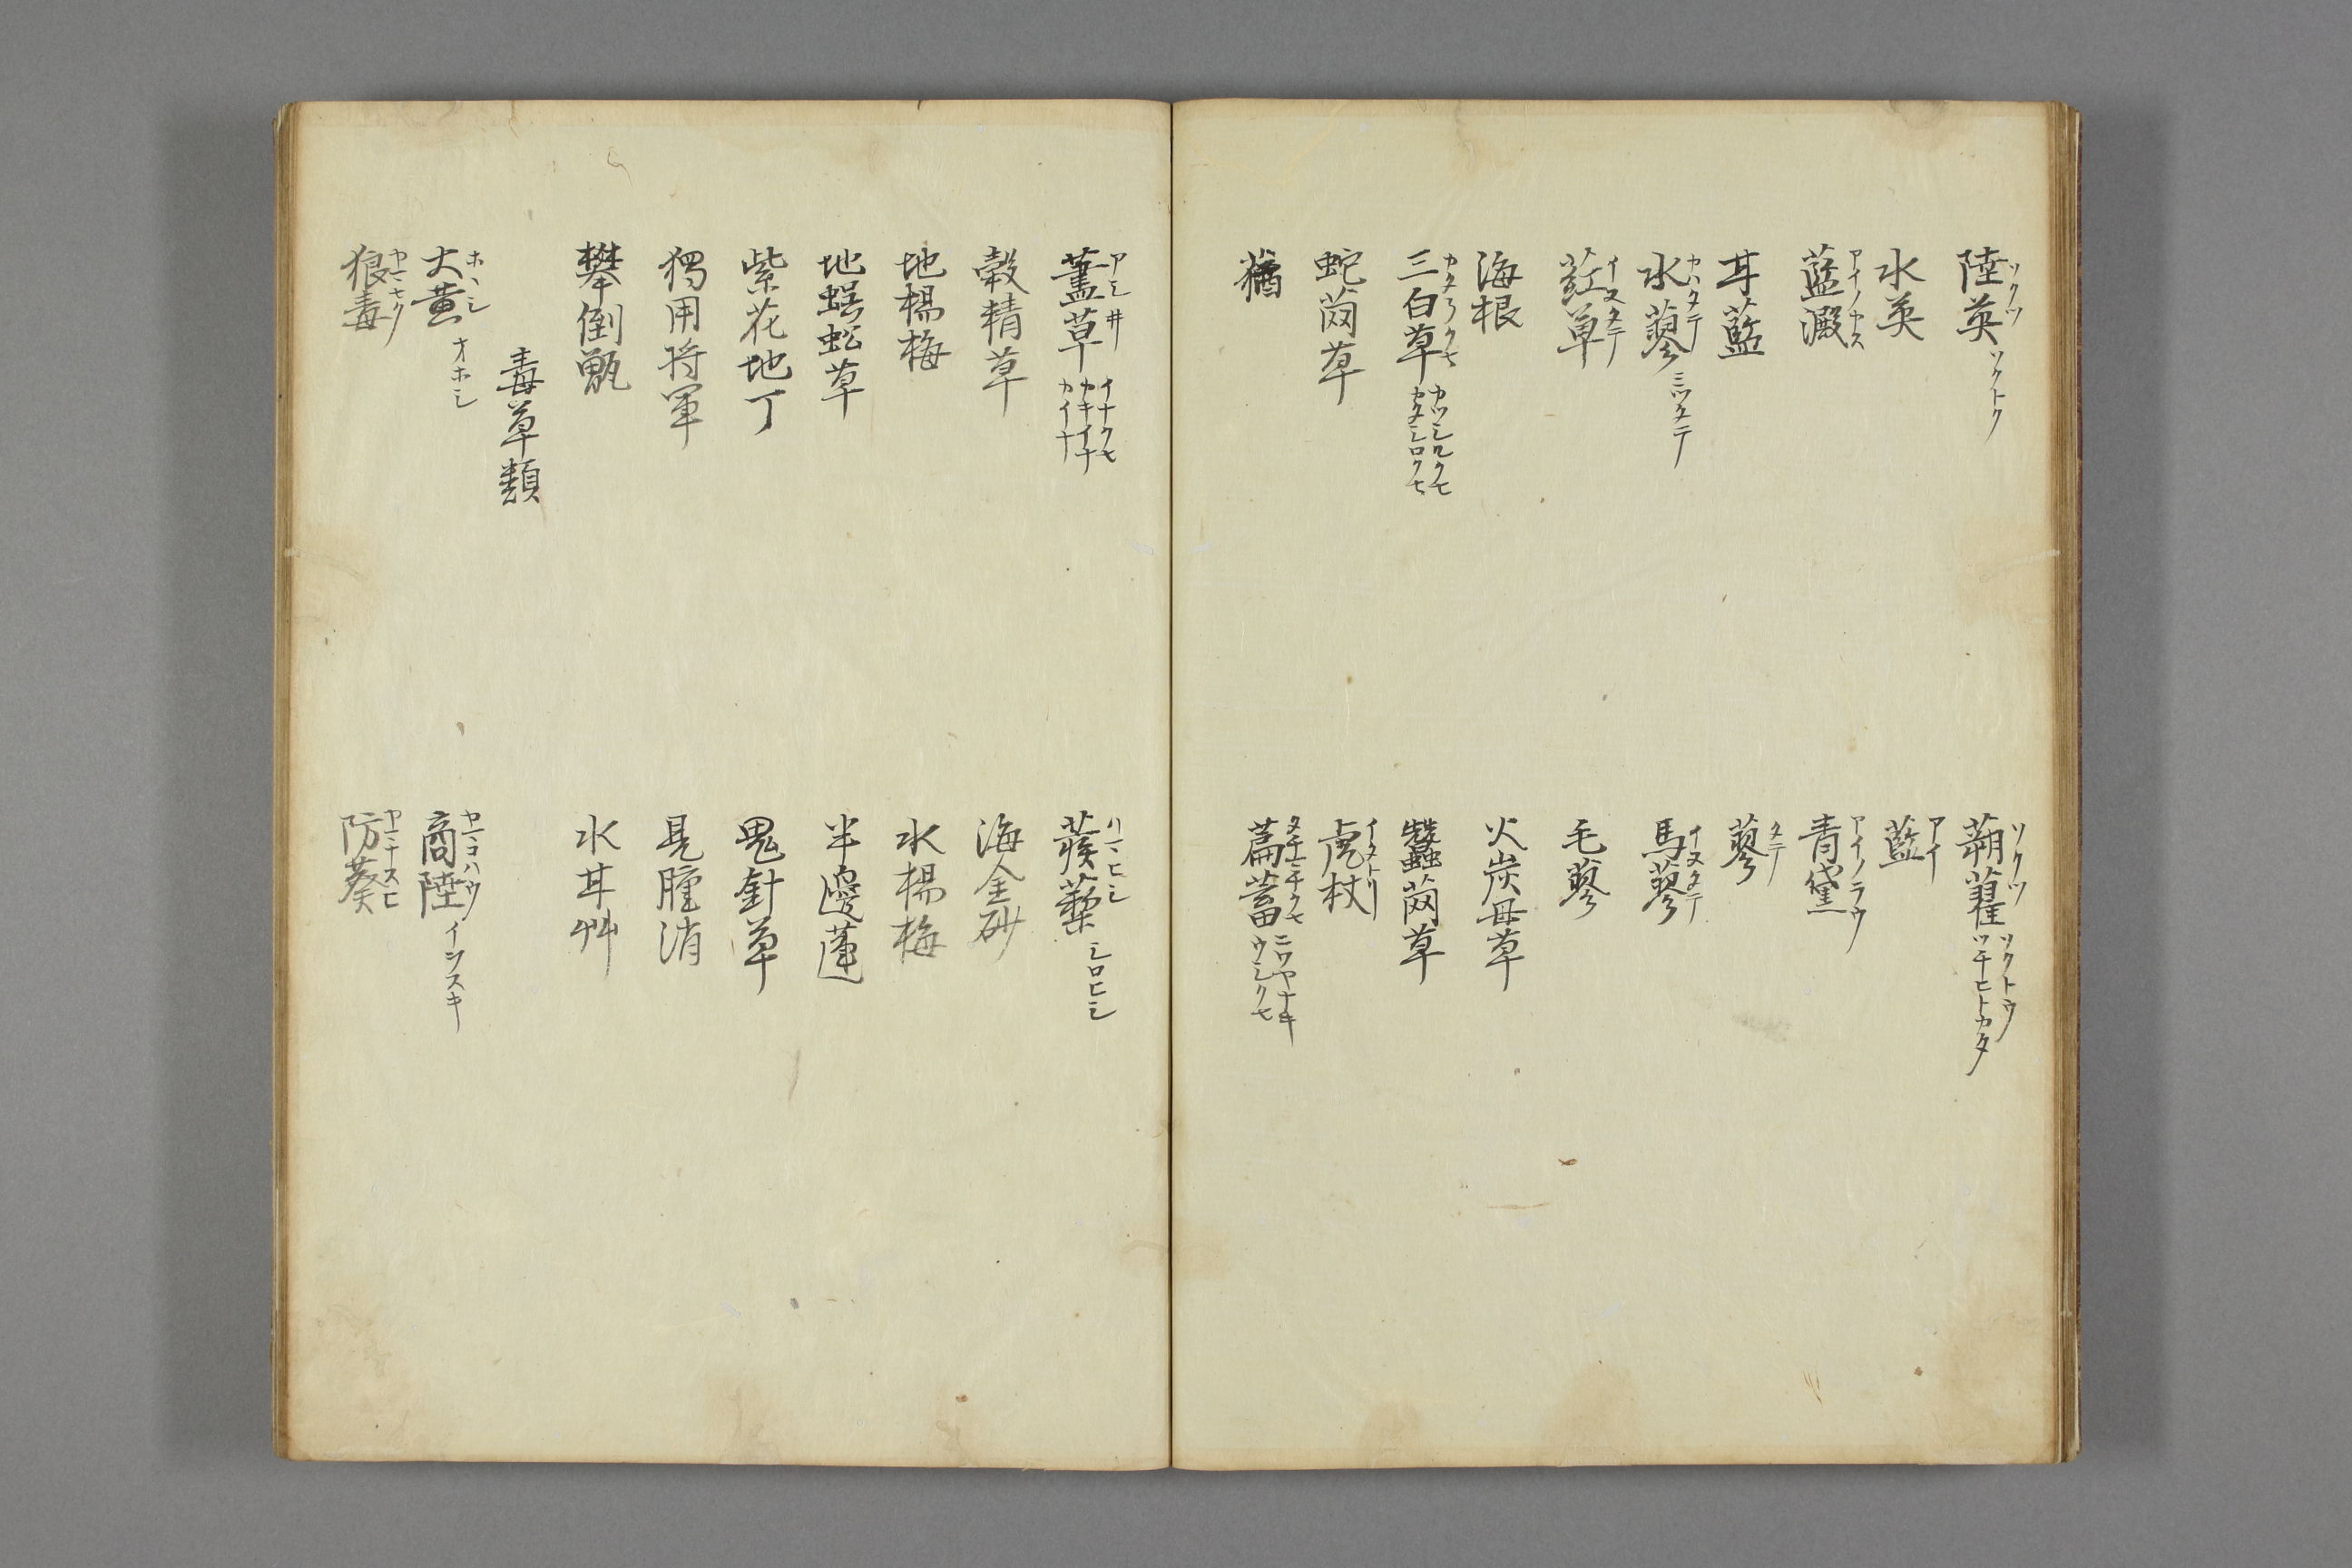 陸英 ソクツ ソクトク
蒴藋 ソクツ ソクトウ ツチヒトカタ
水英
藍 アイ
藍澱 アイノヤス
青黛 アイノラウ
甘藍
蓼 タテ
水蓼 カハタテ ミツタテ
馬蓼 イヌタテ
荭草 イヌタテ
毛蓼
海根
火炭母草
三白草 カタシロクサ カタシロクサ
蠶茵草
蛇茵草
虎杖 イタトリ
蕕
萹蓄 ニワヤナキ ウシクサ
藎草 アシ井 イナクサ カキイナ カイナ
蒺蔾 ハマヒシ シロヒシ
穀精草
海金砂
地楊梅
水楊梅
地蜈蚣草
半邊蓮
紫花地丁
鬼針草
獨用将軍
見腫消
攀倒甑
水甘艸
毒草類
大黄 ホヽシ オホシ
商陸 ヤマコハウ インスキ
狼毒 ヤマサク
防葵 ヤマナスヒ